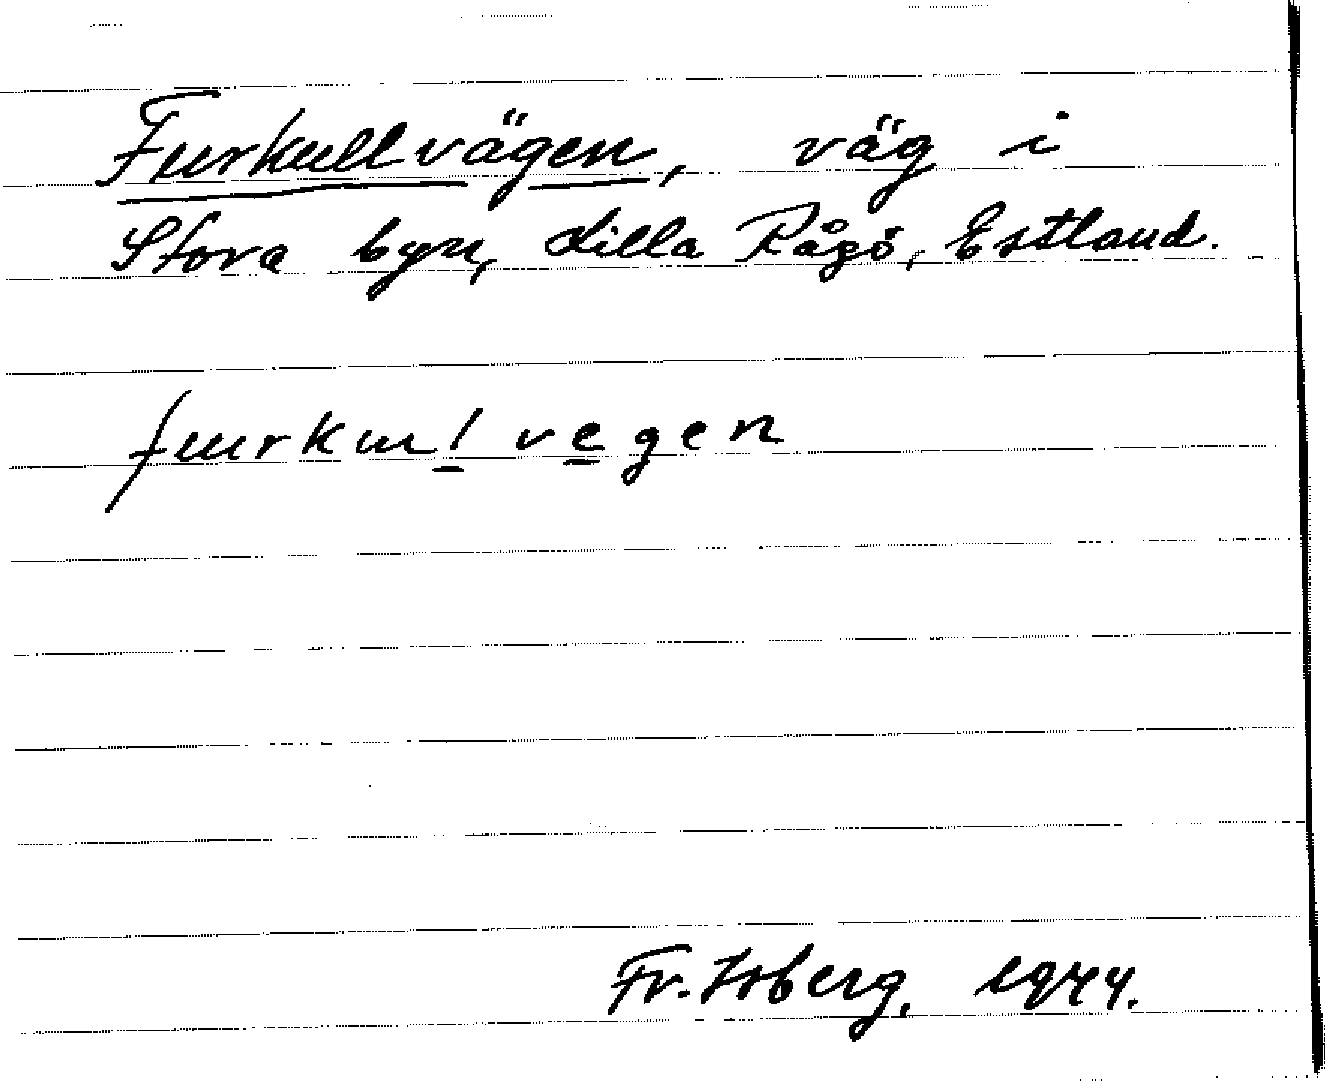 Furkullvägen, väg i
Stora byn, Lilla Rågö, Estland.
fuurkul vegen
Fr. Isberg. 1944.